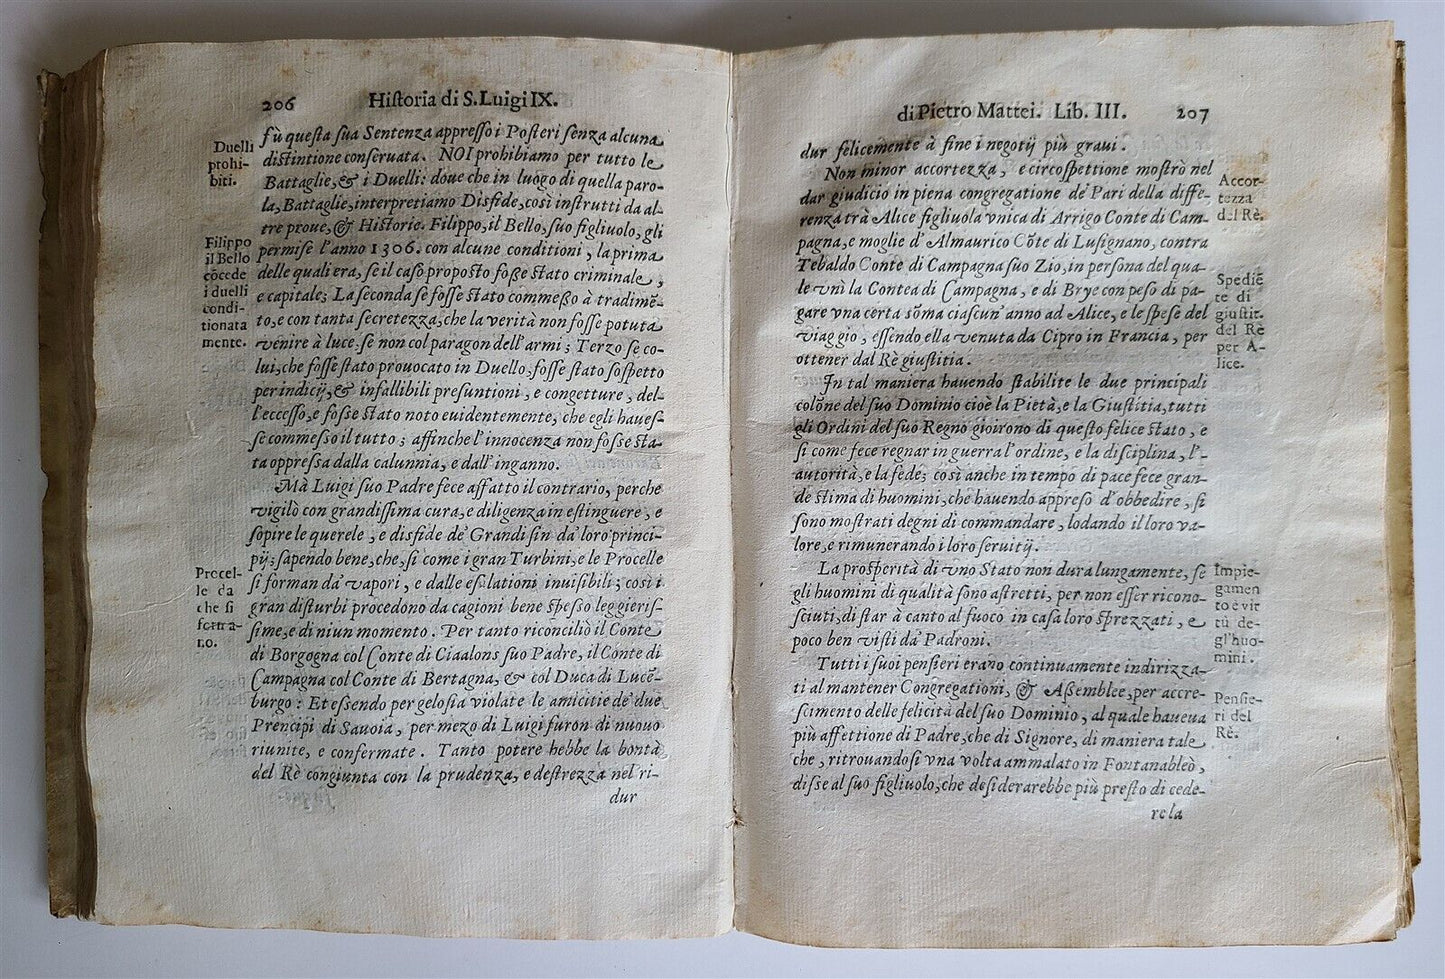 206 Hiſtoria di S. Luigi IX.
fù queſta ſua Sentenza appreſſo i Poſteri ſenza alcuna
diſtintione conſeruata. NOI prohibiamo per tutto le
Battaglie, & i Duelli: doue che in luogo di quella paro-
la, Battaglie, interpretiamo Disfide, così inſtrutti da al-
tre proue, & Hiſtorie. Filippo, il Bello, ſuo figliuolo, gli
permiſe l'anno 1306. con alcune conditioni, la prima
delle quali era, ſe il caſo propoſto foſſe ſtato criminale,
e capitale; La ſeconda ſe foſſe ſtato commeſſo à tradimẽ-
to, e con tanta ſecretezza, che la verità non foſſe potuta
venire à luce, ſe non col paragon dell'armi; Terzo ſe co-
lui, che foſſe ſtato prouocato in Duello, foſſe ſtato ſoſpetto
per indicij, & infallibili preſuntioni, e congetture, del-
l'ecceſſo, e foſſe ſtato noto euidentemente, che egli haueſ-
ſe commeſſo il tutto; affinche l'innocenza non foſſe ſta-
ta oppreſſa dalla calunnia, e dall'inganno.
Mà Luigi ſuo Padre fece affatto il contrario, perche
vigilò con grandiſſima cura, e diligenza in eſtinguere, e
ſopire le querele, e disfide de' Grandi ſin da' loro princi-
pij; ſapendo bene, che, ſi come i gran Turbini, e le Procelle
ſi forman da' vapori, e dalle eſalationi inuiſibili; così i
gran diſturbi procedono da cagioni bene ſpeſſo leggieriſ-
ſime, e di niun momento. Per tanto riconciliò il Conte
di Borgogna col Conte di Ciaalons ſuo Padre, il Conte di
Campagna col Conte di Bertagna, & col Duca di Lucẽ-
burgo: Et eſſendo per geloſia violate le amicitie de' due
Prencipi di Sauoia, per mezo di Luigi furon di nuouo
riunite, e confermate. Tanto potere hebbe la bontà
del Rè congiunta con la prudenza, e deſtrezza nel ri-
dur
Duelli
prohi-
biti.
Filippo
il Bello
cõcede
i duelli
condi-
tionata
mente.
Procel-
le da
che ſi
forma-
no.
di Pietro Mattei. Lib. III. 207
dur felicemente à fine i negotij più graui.
Non minor accortezza, e circoſpettione moſtrò nel
dar giudicio in piena congregatione de' Pari della diffe-
renza trà Alice figliuola vnica di Arrigo Conte di Cam-
pagna, e moglie d'Almaurico Cõte di Luſignano, contra
Tebaldo Conte di Campagna ſuo Zio, in perſona del qua-
le vnì la Contea di Campagna, e di Brye con peſo di pa-
gare vna certa sõma ciaſcun'anno ad Alice, e le ſpeſe del
viaggio, eſſendo ella venuta da Cipro in Francia, per
ottener dal Rè giuſtitia.
In tal maniera hauendo ſtabilite le due principali
colõne del ſuo Dominio cioè la Pietà, e la Giuſtitia, tutti
gli Ordini del ſuo Regno gioirono di queſto felice ſtato, e
ſi come fece regnar in guerra l'ordine, e la diſciplina, l'-
autorità, e la fede; così anche in tempo di pace fece gran-
de ſtima di huomini, che hauendo appreſo d'obbedire, ſi
ſono moſtrati degni di commandare, lodando il loro va-
lore, e rimunerando i loro ſeruitij.
La proſperità di vno Stato non dura lungamente, ſe
gli huomini di qualità ſono aſtretti, per non eſſer ricono-
ſciuti, di ſtar à canto al fuoco in caſa loro ſprezzati, e
poco ben viſti da' Padroni.
Tutti i ſuoi penſieri erano continuamente indirizza-
ti al mantener Congregationi, & Aſſemblee, per accre-
ſcimento delle felicità del ſuo Dominio, al quale haueua
più affettione di Padre, che di Signore, di maniera tale
che, ritrouandoſi vna volta ammalato in Fontanableò,
diſſe al ſuo figliuolo, che deſiderarebbe più preſto di cede-
re la
Accor-
tezza
del Rè.
Spediẽ
te di
giuſtit.
del Rè
per A-
lice.
Impie-
gamen
to e vir
tù de-
gl'huo-
mini.
Penſie-
ri del
Rè.